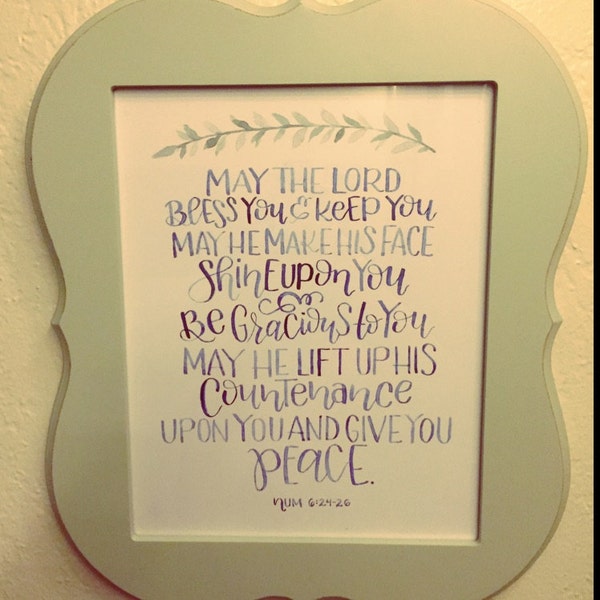 MAY THE LORD
BLESS YOU & KEEP YOU
MAY HE MAKE HIS FACE
ShinE UPON YOU
&
BE GRACIOUS to YOU
MAY HE LIFT UP HIS
Countenance
UPON YOU AND GIVE YOU
PEACE.
NUM 6:24-26